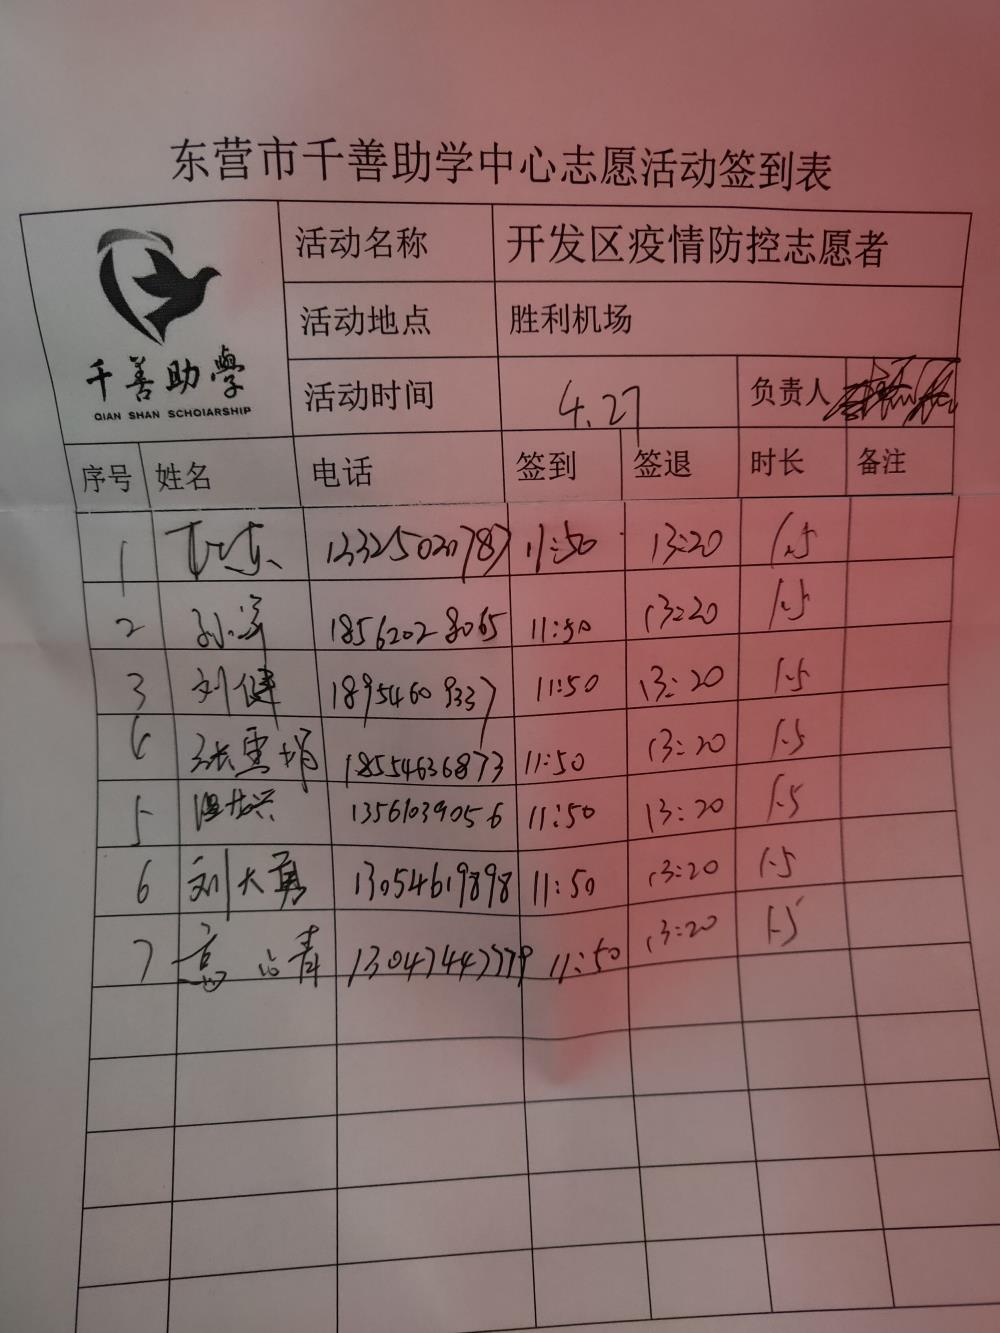 东营市千善助学中心志愿活动签到表
千善助學
QIAN SHAN SCHOIARSHIP
活动名称 开发区疫情防控志愿者
活动地点 胜利机场
活动时间 4.27 负责人
序号 姓名 电话 签到 签退 时长 备注
1 11:50 13:20 1.5
2 孙洋 18562028065 11:50 13:20 1.5
3 刘健 18954609337 11:50 13:20 1.5
4 张雪娟 18554636873 11:50 13:20 1.5
5 13561039056 11:50 13:20 1.5
6 刘大勇 13054619898 11:50 13:20 1.5
7 11:50 13:20 1.5